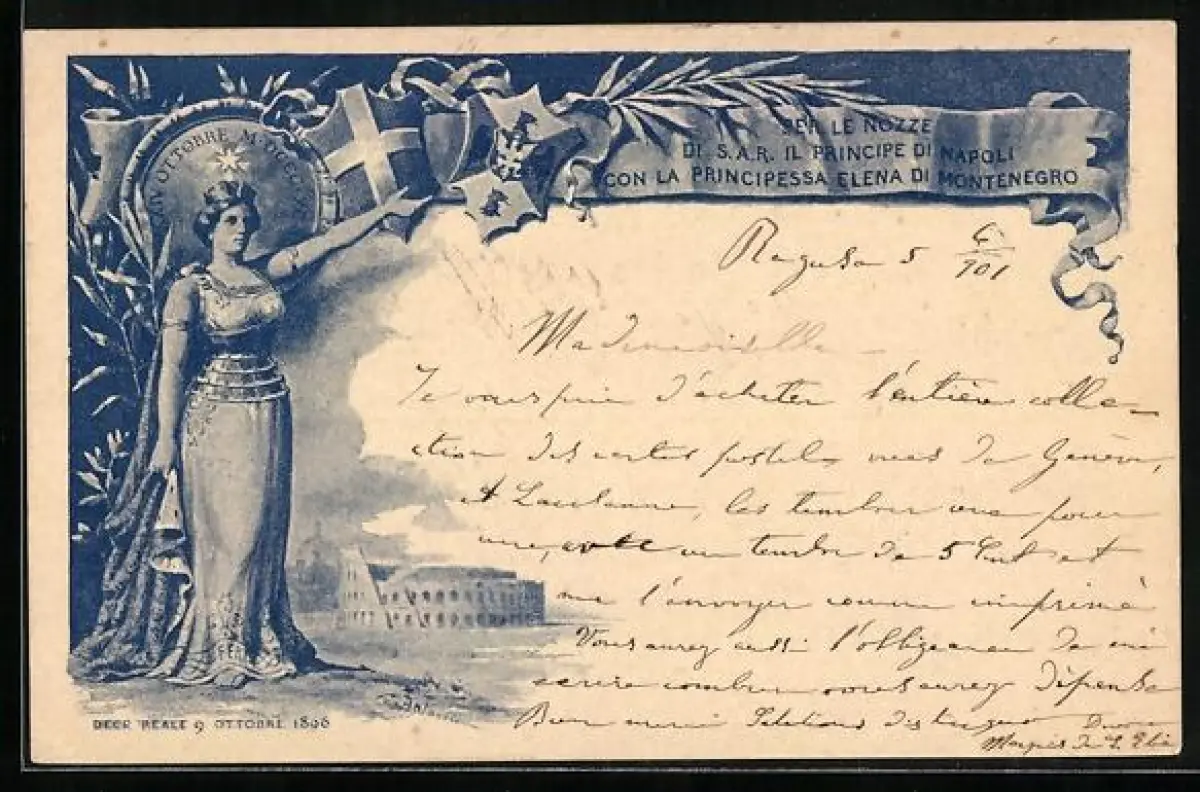 XXIV OTTOBRE M.DCCC.XC
PER LE NOZZE
DI S.A.R. IL PRINCIPE DI NAPOLI
CON LA PRINCIPESSA ELENA DI MONTENEGRO
Ragusa 5 6/901
Mademoiselle
Je vous prie d'acheter l'entière colle-
ction des cartes postales vues de Genève,
et Lausanne, les timbrer une pour
une, avec un timbre de 5 Cent et
me l'envoyer comme imprimé
Vous aurez aussi l'obligeance de m'é
crire combien vous aurez dépensé
Bien merci
DECR REALE 9 OTTOBRE 1896